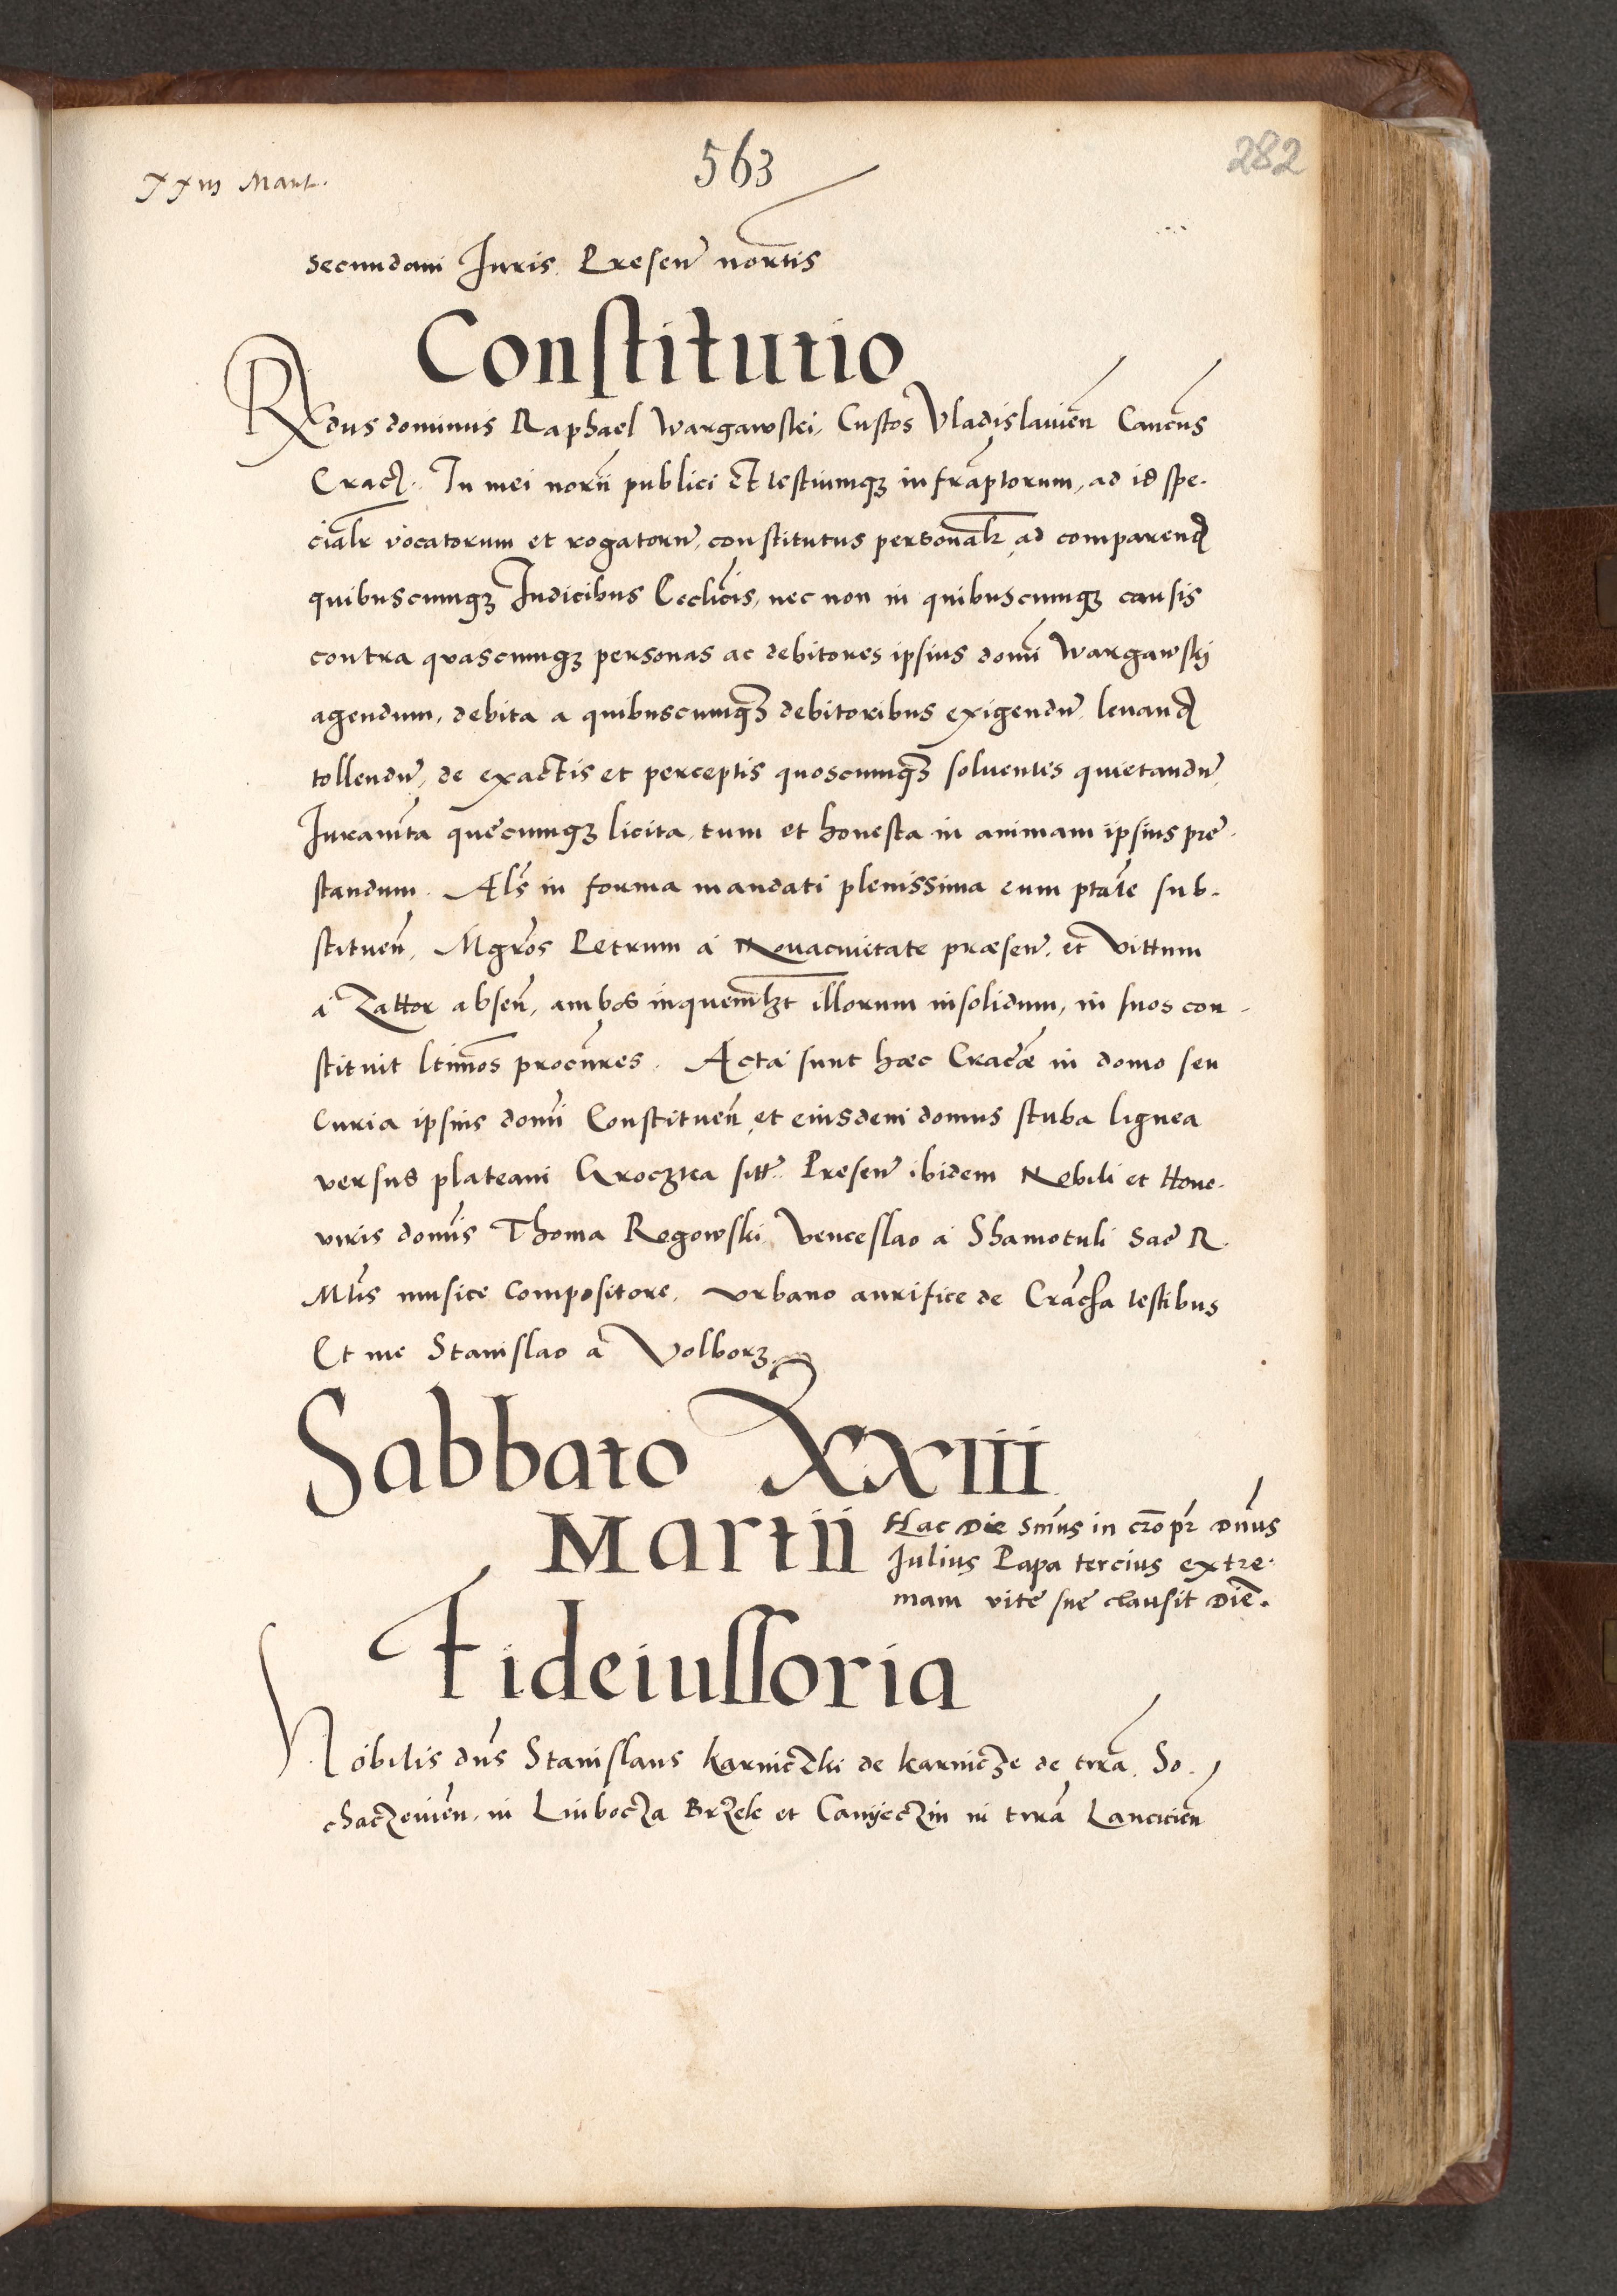 563
282
XXIII Mart.
secundam Iuris. Presen̄ nortis
Constitutio
Rdus dominus Raphael Wargawski, Custos Vladislauien̄ Canc̄us
Crac̄. In mei norīi publici Et testiumqꝫ infrāptorum, ad id spe.
ciālr vocatorum et rogatorū, constitutus personālr ad comparend̄
quibuscumqꝫ Iudicibus Ecclīcis, nec non in quibuscumqꝫ causis
contra quascumqꝫ personas ac debitores ipsius domī Wargawskj
agendum, debita a quibuscumqꝫ debitoribus exigendū, leuand̄
tollendū, de exactis et perceptis quoscumqꝫ soluentes quietandū,
Iuramn̄ta quęcumqꝫ licita, tum et honesta in animam ipsius prę.
standum. Al̄s in forma mandati plenissima cum ptāte sub.
stituen̄, Mgr̄os Petrum á Nouaciuitate præsen̄. et Vittum
á Zattor absen̄, ambos inquemlꝫt illorum insolidum, in suos con.
stituit ltimōs procūres. Acta sunt hæc Crac̄æ in domo seu
Curia ipsius domī Constituen̄ et eiusdem domus stuba lignea
versus plateam Groczka sitt̄. Presen̄ ibidem Nobili et Hone.
viris domīs Thoma Rogowski, Venceslao á Shamotuli Sac̄ R.
Mt̄is musice Compositore, Vrbano aurifice de Crac̄ha testibus
Et me Stanislao a Volborz.
Sabbato XXIII
Martii
Hac Die Sm̄us in cr̄o pr̄ Dn̄us
Julius Papa tercius extre.
mam vitę suę clausit Diē.
Fideiussoria
Nobilis dn̄s Stanislaus karniczki de karnicze de trrā. So.
chaczeuien̄. in Luboczа Brzek et Canyeczin in trrā Lancicien̄